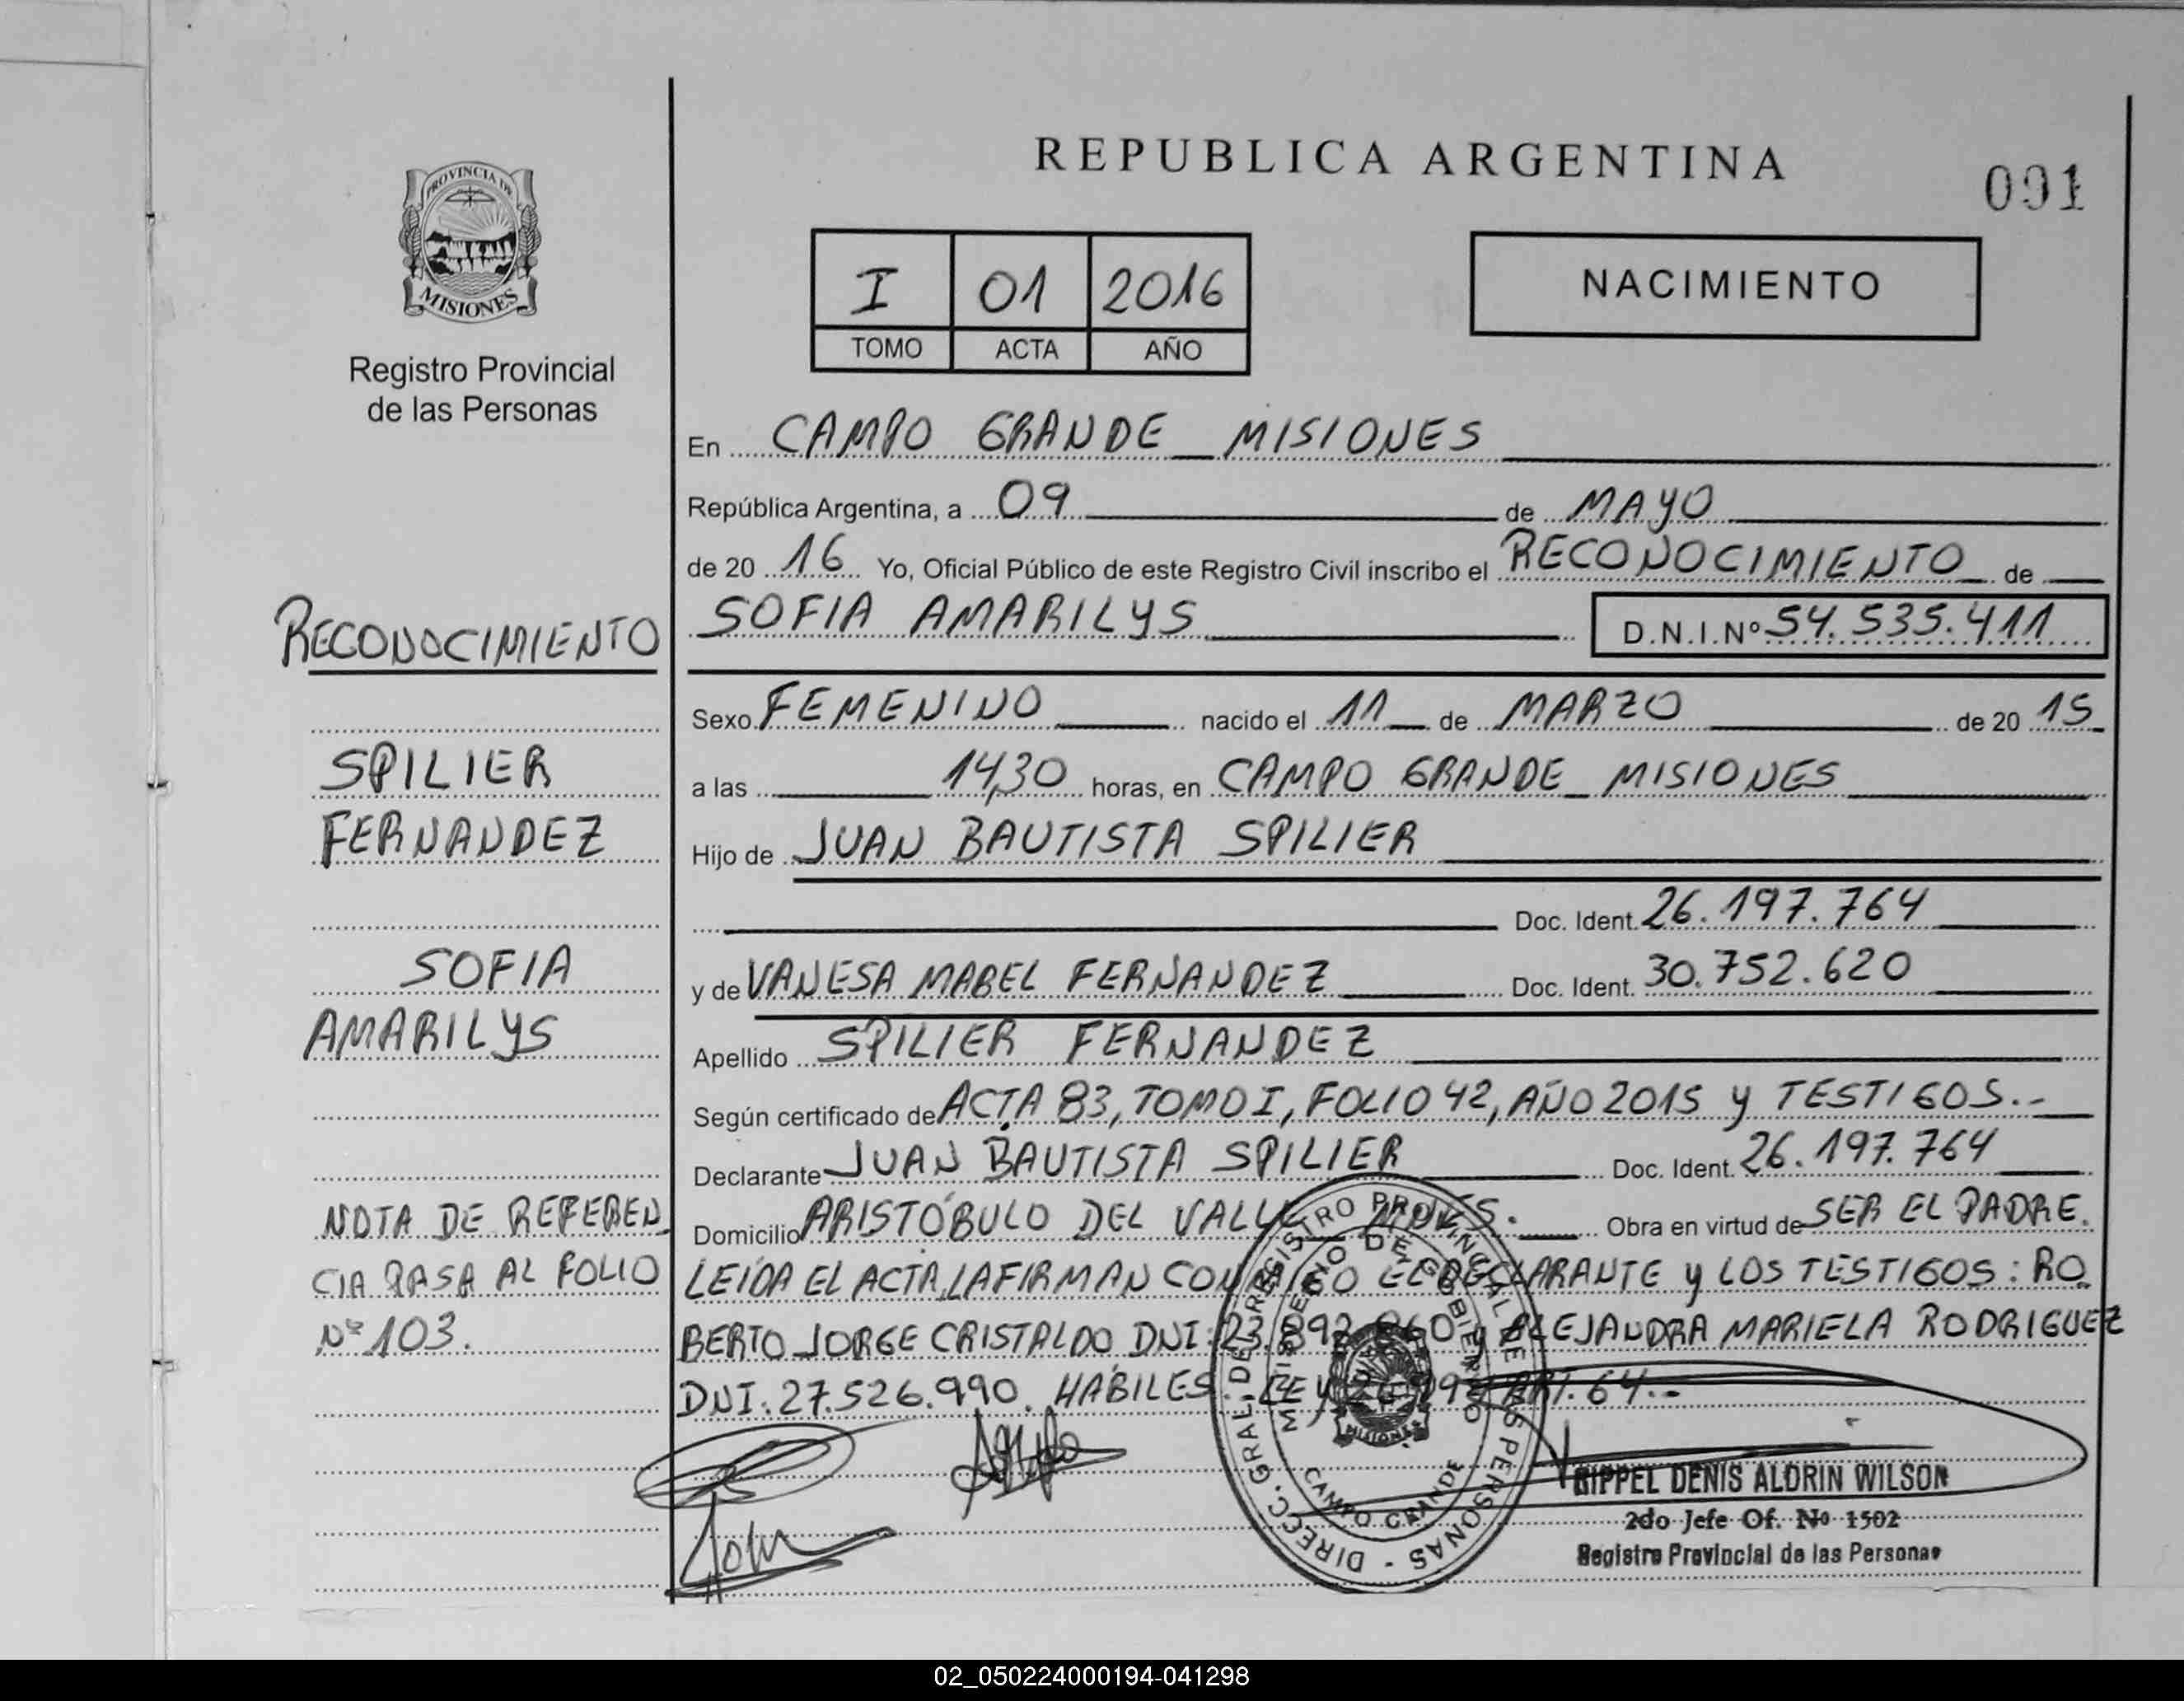 REPUBLICA ARGENTINA
001
PROVINCIA DE
MISIONES
Registro Provincial
de las Personas
I 01 2016
TOMO ACTA AÑO
NACIMIENTO
En CAMPO GRANDE MISIONES
República Argentina, a 09 de MAYO
de 20 16 Yo, Oficial Público de este Registro Civil inscribo el RECONOCIMIENTO de
SOFIA AMARILYS D.N.I.Nº 54.535.411
Sexo FEMENINO nacido el 11 de MARZO de 20 15
a las 14,30 horas, en CAMPO GRANDE MISIONES
Hijo de JUAN BAUTISTA SPILIER
Doc. Ident. 26.197.764
y de VANESA MABEL FERNANDEZ Doc. Ident. 30.752.620
Apellido SPILIER FERNANDEZ
Según certificado de ACTA 83, TOMO I, FOLIO 42, AÑO 2015 y TESTIGOS.-
Declarante JUAN BAUTISTA SPILIER Doc. Ident. 26.197.764
Domicilio ARISTÓBULO DEL VALLE MNES. Obra en virtud de SER EL PADRE.
LEÍDA EL ACTA, LA FIRMAN CONMIGO EL DECLARANTE y LOS TESTIGOS: RO
BERTO JORGE CRISTALDO DNI: y ALEJANDRA MARIELA RODRIGUEZ
DNI: 27.526.990. HÁBILES. LEY ART. 64.-
RECONOCIMIENTO
SPILIER
FERNANDEZ
SOFIA
AMARILYS
NOTA DE REFEREN
CIA PASA AL FOLIO
Nº 103.
DIRECC. GRAL. DEL REGISTRO PROVINCIAL DE LAS PERSONAS -
MINISTERIO DE GOBIERNO
MISIONES
CAMPO GRANDE
RIPPEL DENIS ALDRIN WILSON
2do Jefe Of. Nº 1502
Registro Provincial de las Personas
02_050224000194-041298